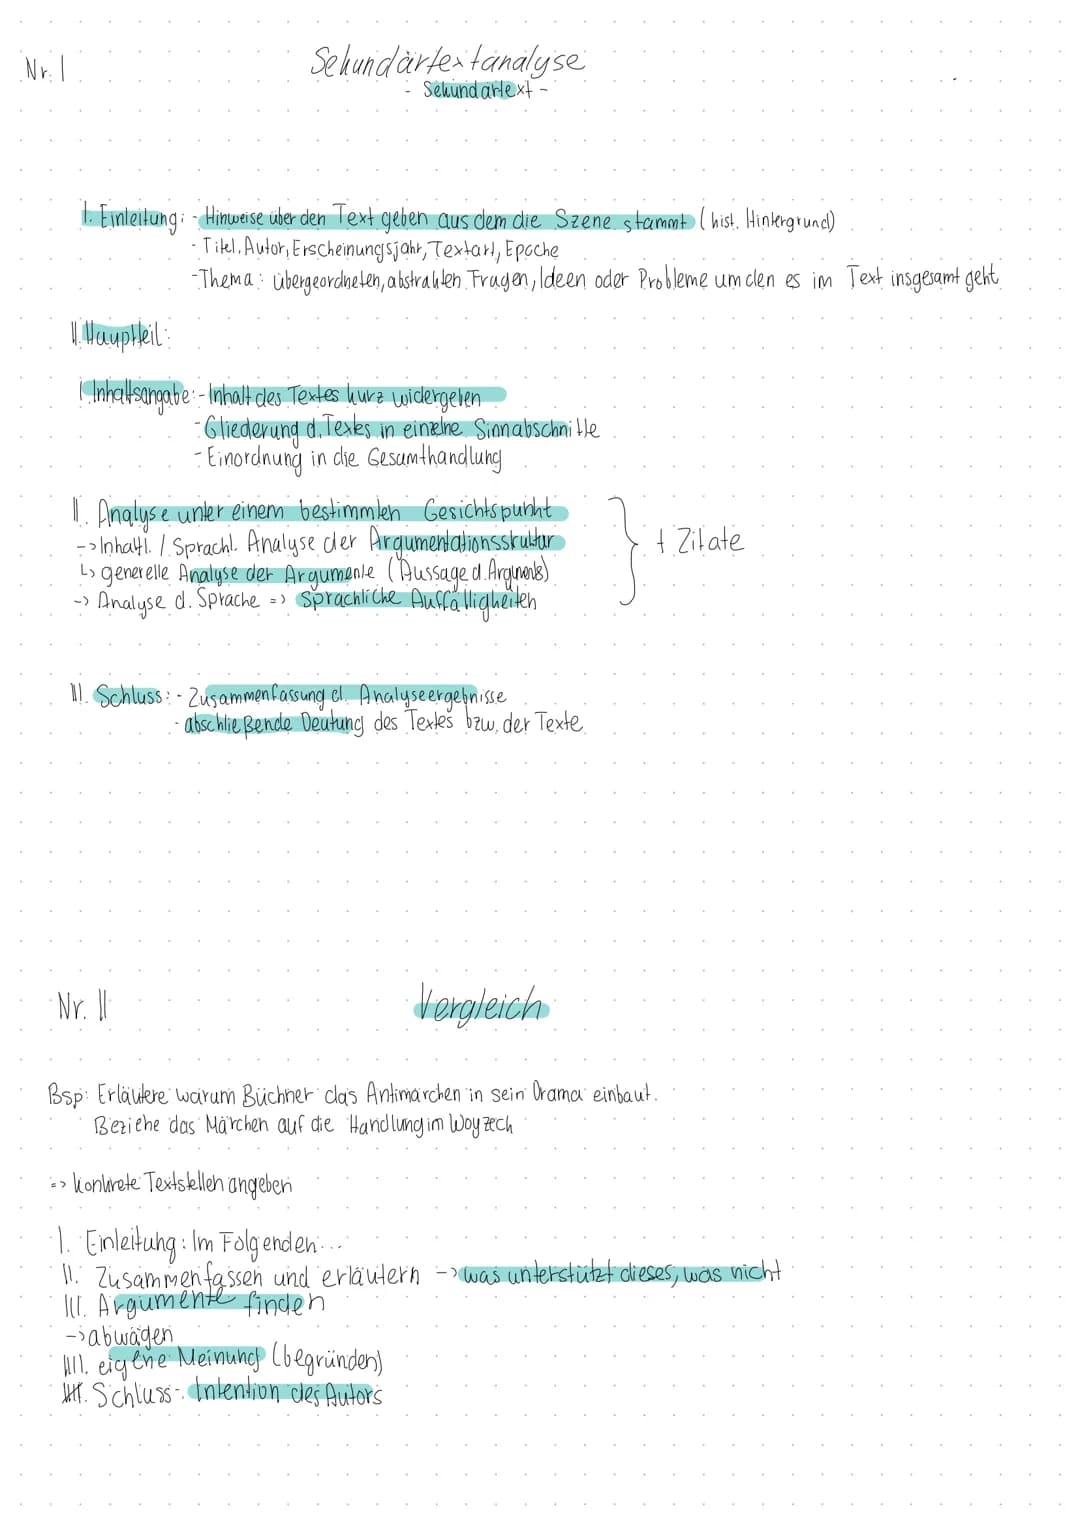 Nr. I
Sekundärtextanalyse
- Sekundärtext -
I. Einleitung: - Hinweise über den Text geben aus dem die Szene stammt (hist. Hintergrund)
- Titel, Autor, Erscheinungsjahr, Textart, Epoche
- Thema: übergeordneten, abstrakten Fragen, Ideen oder Probleme um den es im Text insgesamt geht
II. Hauptteil:
I. Inhaltsangabe: - Inhalt des Textes kurz widergeben
- Gliederung d. Textes in einzelne Sinnabschnitte
- Einordnung in die Gesamthandlung
II. Analyse unter einem bestimmten Gesichtspunkt
-> Inhaltl. / Sprachl. Analyse der Argumentationsstruktur
↳ generelle Analyse der Argumente (Aussage d. Arguments)
-> Analyse d. Sprache => Sprachliche Auffälligkeiten
+ Zitate
III. Schluss: - Zusammenfassung d. Analyseergebnisse
- abschließende Deutung des Textes bzw. der Texte
Nr. II
Vergleich
Bsp: Erläutere warum Büchner das Antimärchen in sein Drama einbaut.
Beziehe das Märchen auf die Handlung im Woyzeck
=> konkrete Textstellen angeben
I. Einleitung: Im Folgenden...
II. Zusammenfassen und erläutern -> was unterstützt dieses, was nicht
III. Argumente finden
-> abwägen
IIII. eigene Meinung (begründen)
IIIII. Schluss - Intention des Autors